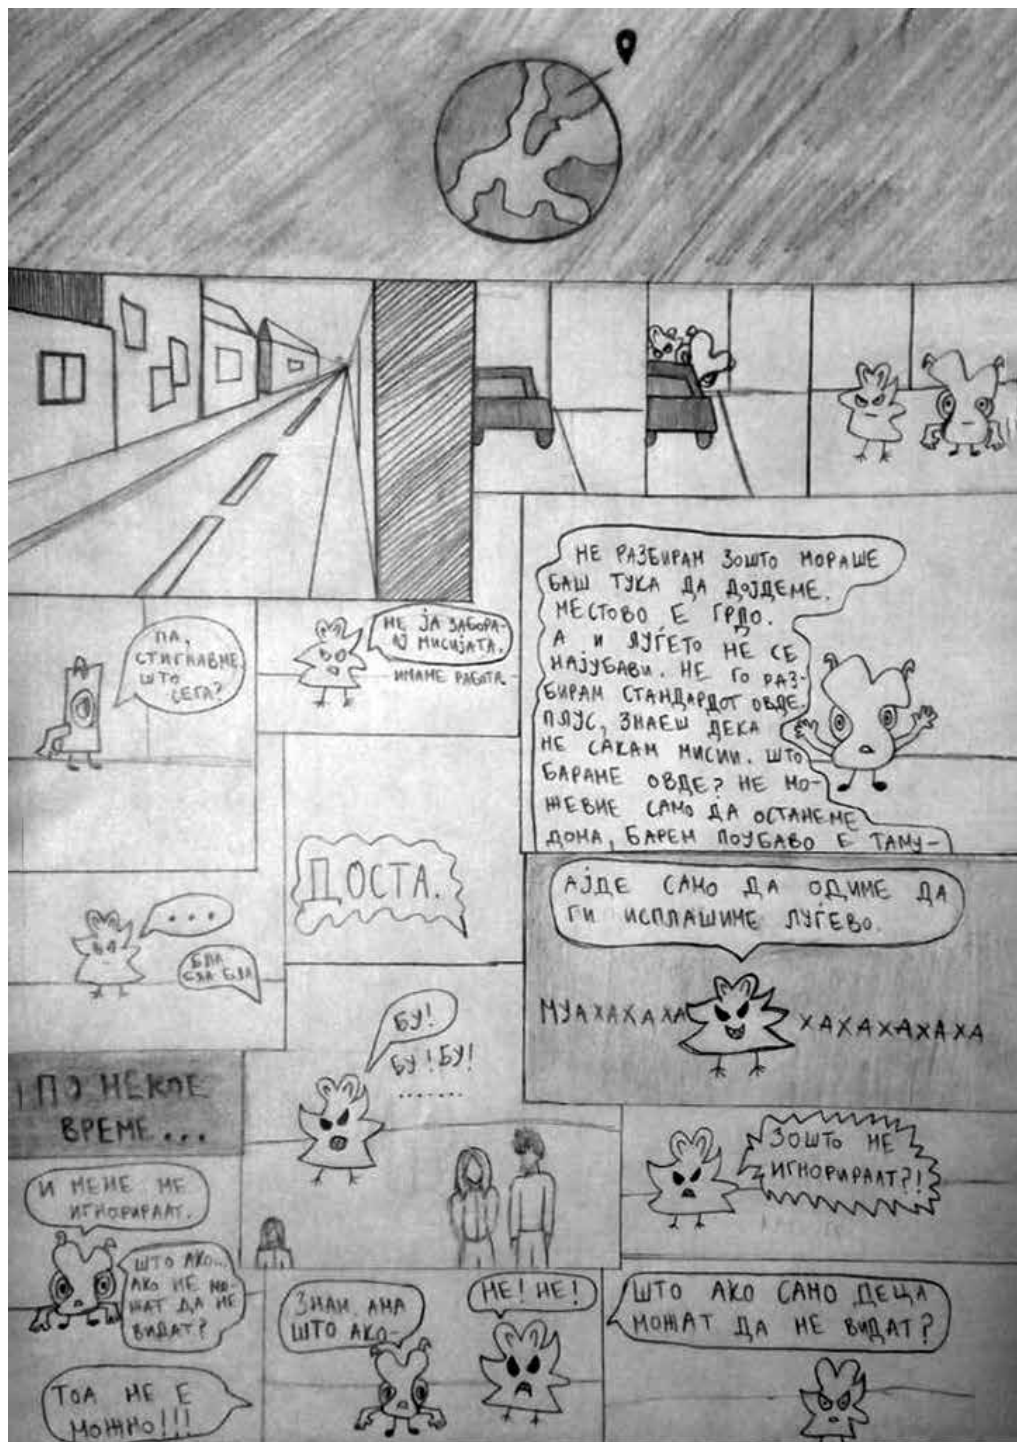 ПА,
СТИГНАВМЕ,
ШТО
СЕГА?
НЕ ЈА ЗАБОРА-
АЈ МИСИЈАТА.
ИМАМЕ РАБОТА.
НЕ РАЗБИРАМ ЗОШТО МОРАШЕ
БАШ ТУКА ДА ДОЈДЕМЕ.
МЕСТОВО Е ГРДО.
А И ЛУЃЕТО НЕ СЕ
НАЈУБАВИ. НЕ ГО РАЗ-
БИРАМ СТАНДАРДОТ ОВДЕ
ПЛУС, ЗНАЕШ ДЕКА
НЕ САКАМ МИСИИ. ШТО
БАРАМЕ ОВДЕ? НЕ МО-
ЖЕВМЕ САМО ДА ОСТАНЕМЕ
ДОМА, БАРЕМ ПОУБАВО Е ТАМУ-
...
БЛА
БЛА БЛА
ДОСТА.
АЈДЕ САМО ДА ОДИМЕ ДА
ГИ ИСПЛАШИМЕ ЛУЃЕВО.
МУАХАХАХА
ХАХАХАХАХА
ПО НЕКОЕ
ВРЕМЕ...
БУ!
БУ! БУ!
.......
ЗОШТО НЕ
ИГНОРИРААТ?!
И МЕНЕ МЕ
ИГНОРИРААТ.
ШТО АКО...
АКО НЕ МО-
ЖАТ ДА НЕ
ВИДАТ?
ТОА НЕ Е
МОЖНО!!!
ЗНАМ АМА
ШТО АКО-
НЕ! НЕ!
ШТО АКО САМО ДЕЦА
МОЖАТ ДА НЕ ВИДАТ?